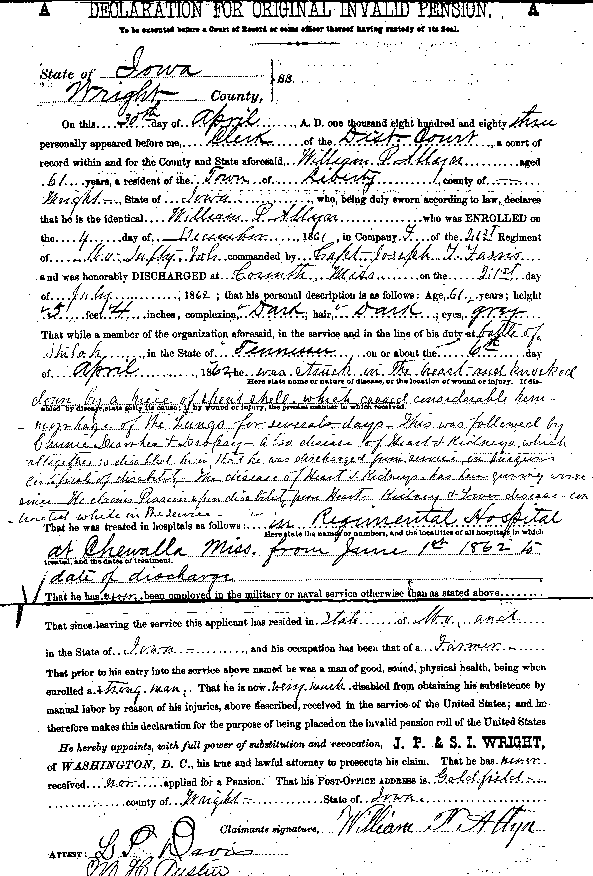 A DECLARATION FOR ORIGINAL INVALID PENSION. A
To be executed before a Court of Record or some officer thereof having custody of its Seal.
State of Iowa
Wright County, } 88.
On this 30th day of April, A. D. one thousand eight hundred and eighty three
personally appeared before me, Clerk of the Dist. Court, a court of
record within and for the County and State aforesaid, William P. Allyn aged
61 years, a resident of the Town of Liberty, county of
Wright, State of Iowa who, being duly sworn according to law, declares
that he is the identical William P. Allyn who was ENROLLED on
the 4 day of December, 1861, in Company F of the 21st Regiment
of Mo. Infty. Vols commanded by Capt. Joseph T. Farris
and was honorably DISCHARGED at Corinth Miss on the 21st day
of July, 1862; that his personal description is as follows: Age, 61, years; height
5 feet 4 inches, complexion, Dark; hair, Dark; eyes, grey
That while a member of the organization aforesaid, in the service and in the line of his duty at battle of
Shiloh in the State of Tennessee on or about the 6th day
of April, 1862 he was struck in the breast and knocked
Here state name or nature of disease, or the location of wound or injury. If dis-
down by a piece of spent shell, which caused considerable hem-
abled by disease, state fully its cause; if by wound or injury, the precise manner in which received.
morrhage of the lungs for several days. This was followed by
Chronic Diarrhea & Dropsy - Also disease of Heart & Kidneys, which
altogether so disabled him that he was discharged from service on surgeons
certificate of disability. The disease of Heart & Kidneys has been growing worse
since. He claims Pension upon disability from Heart Kidney & Liver disease con-
tracted while in the service
That he was treated in hospitals as follows: in Regimental Hospital
Here state the names or numbers, and the localities of all hospitals in which
at Chewalla Miss. from June 1st 1862 to
treated, and the dates of treatment.
date of discharge
That he has never been employed in the military or naval service otherwise than as stated above.
That since leaving the service this applicant has resided in State of Mo. and
in the State of Iowa, and his occupation has been that of a Farmer
That prior to his entry into the service above named he was a man of good, sound, physical health, being when
enrolled a strong man. That he is now very much disabled from obtaining his subsistence by
manual labor by reason of his injuries, above described, received in the service of the United States; and he
therefore makes this declaration for the purpose of being placed on the invalid pension roll of the United States
He hereby appoints, with full power of substitution and revocation, J. P. & S. I. WRIGHT,
of WASHINGTON, D. C., his true and lawful attorney to prosecute his claim. That he has never
received nor applied for a Pension. That his POST-OFFICE ADDRESS is Goldfield
county of Wright State of Iowa.
Claimants signature, William P. Allyn
ATTEST: G. P. Davis